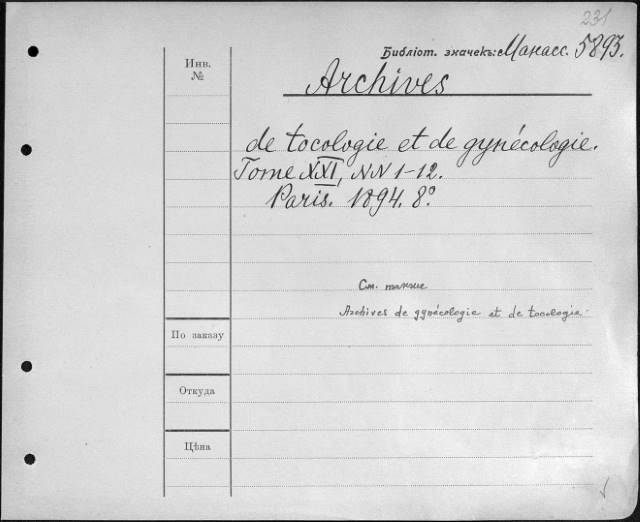 231
Библіот. значекъ: Манасс. 5893.
Инв.
№
Archives
de tocologie et de gynécologie.
Tome XXI, NN 1-12.
Paris. 1894. 8°.
См. также
Archives de gynécologie et de tocologie.
По заказу
Откуда
Цѣна